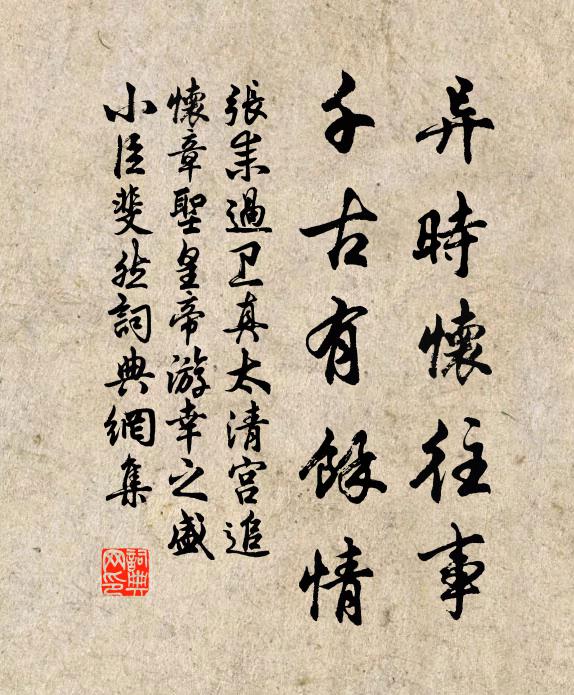 异時懷往事
千古有餘情
張耒過卫真太清宮追
懷章聖皇帝游幸之盛
小臣斐然詞典網集
詞典
网印